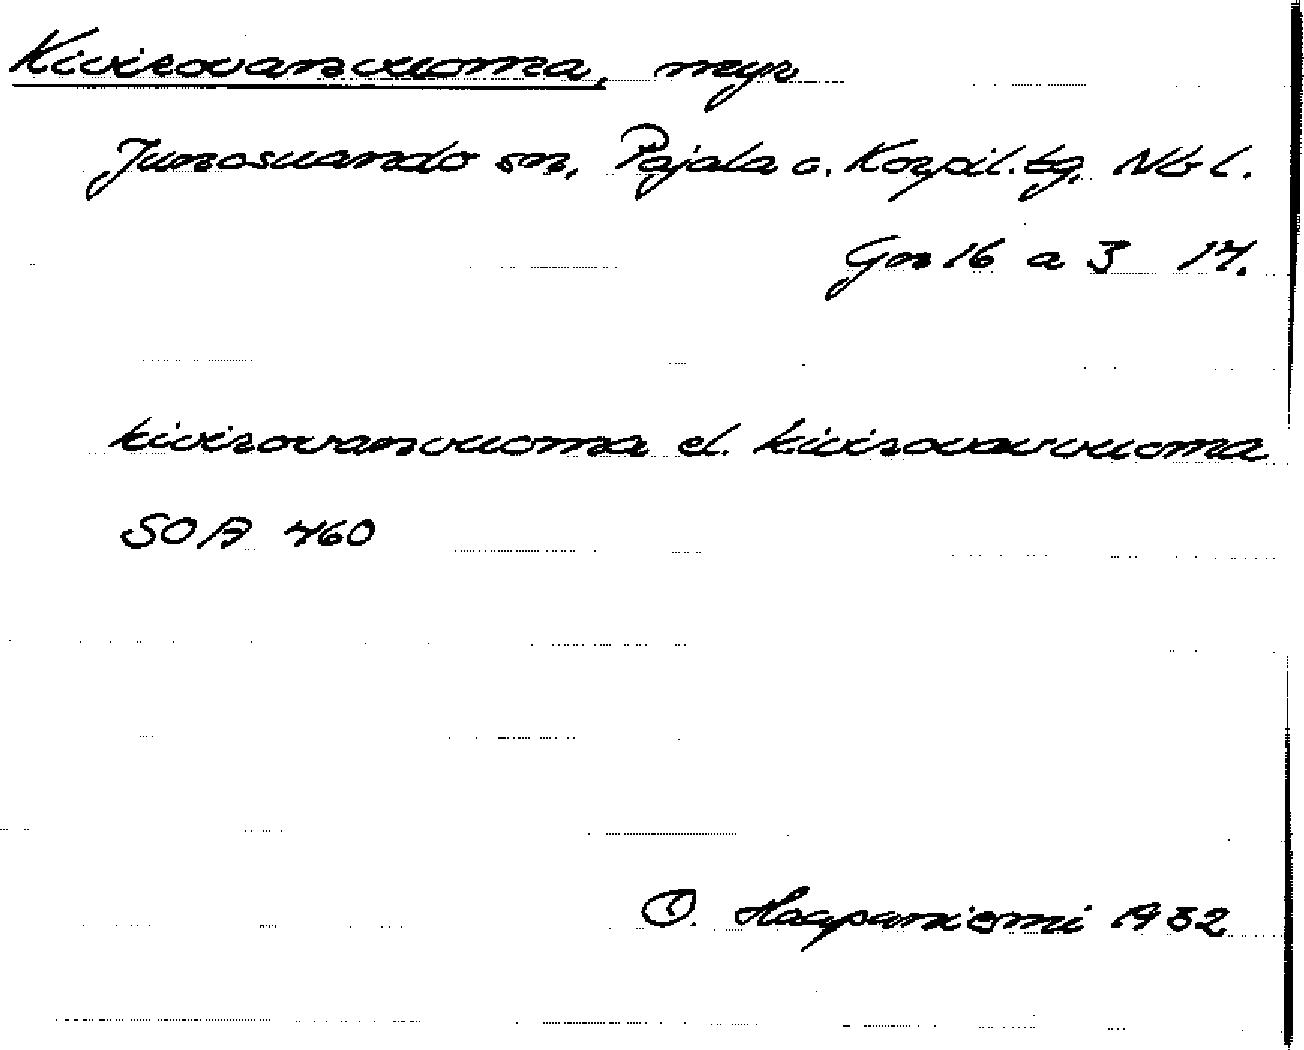 Kivirovanvuoma, myr
Junosuando sn, Pajala o. Korpil. tg, Nb l.
Gn 16 a 3 14.
kivirovanvuoma el. kivirovavvuoma
SOA 460
O. Haapaniemi 1932